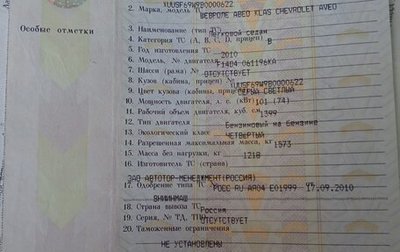 XUUSF69W9B0000622
2. Марка, модель ТС ШЕВРОЛЕ АВЕО KLAS CHEVROLET AVEO
Особые отметки
3. Наименование (тип ТС) Легковой седан
4. Категория ТС (А, В, С, D, прицеп) B
5. Год изготовления ТС 2010
6. Модель, № двигателя F14D4 061196KA
7. Шасси (рама) № ОТСУТСТВУЕТ
8. Кузов (кабина, прицеп) № XUUSF69W9B0000622
9. Цвет кузова (кабины, прицепа) СЕРЫЙ СВЕТЛЫЙ
10. Мощность двигателя, л. с. (кВт) 101 (74)
11. Рабочий объем двигателя, куб. см 1399
12. Тип двигателя Бензиновый на Бензине
13. Экологический класс ЧЕТВЕРТЫЙ
14. Разрешенная максимальная масса, кг 1573
15. Масса без нагрузки, кг 1218
16. Изготовитель ТС (страна)
ЗАО АВТОТОР-МЕНЕДЖМЕНТ(РОССИЯ)
17. Одобрение типа ТС № РОСС RU AЯ04 E01999 17.09.2010
18. Страна вывоза ТС Россия
19. Серия, № ТД, ТПО ОТСУТСТВУЕТ
20. Таможенные ограничения
НЕ УСТАНОВЛЕНЫ